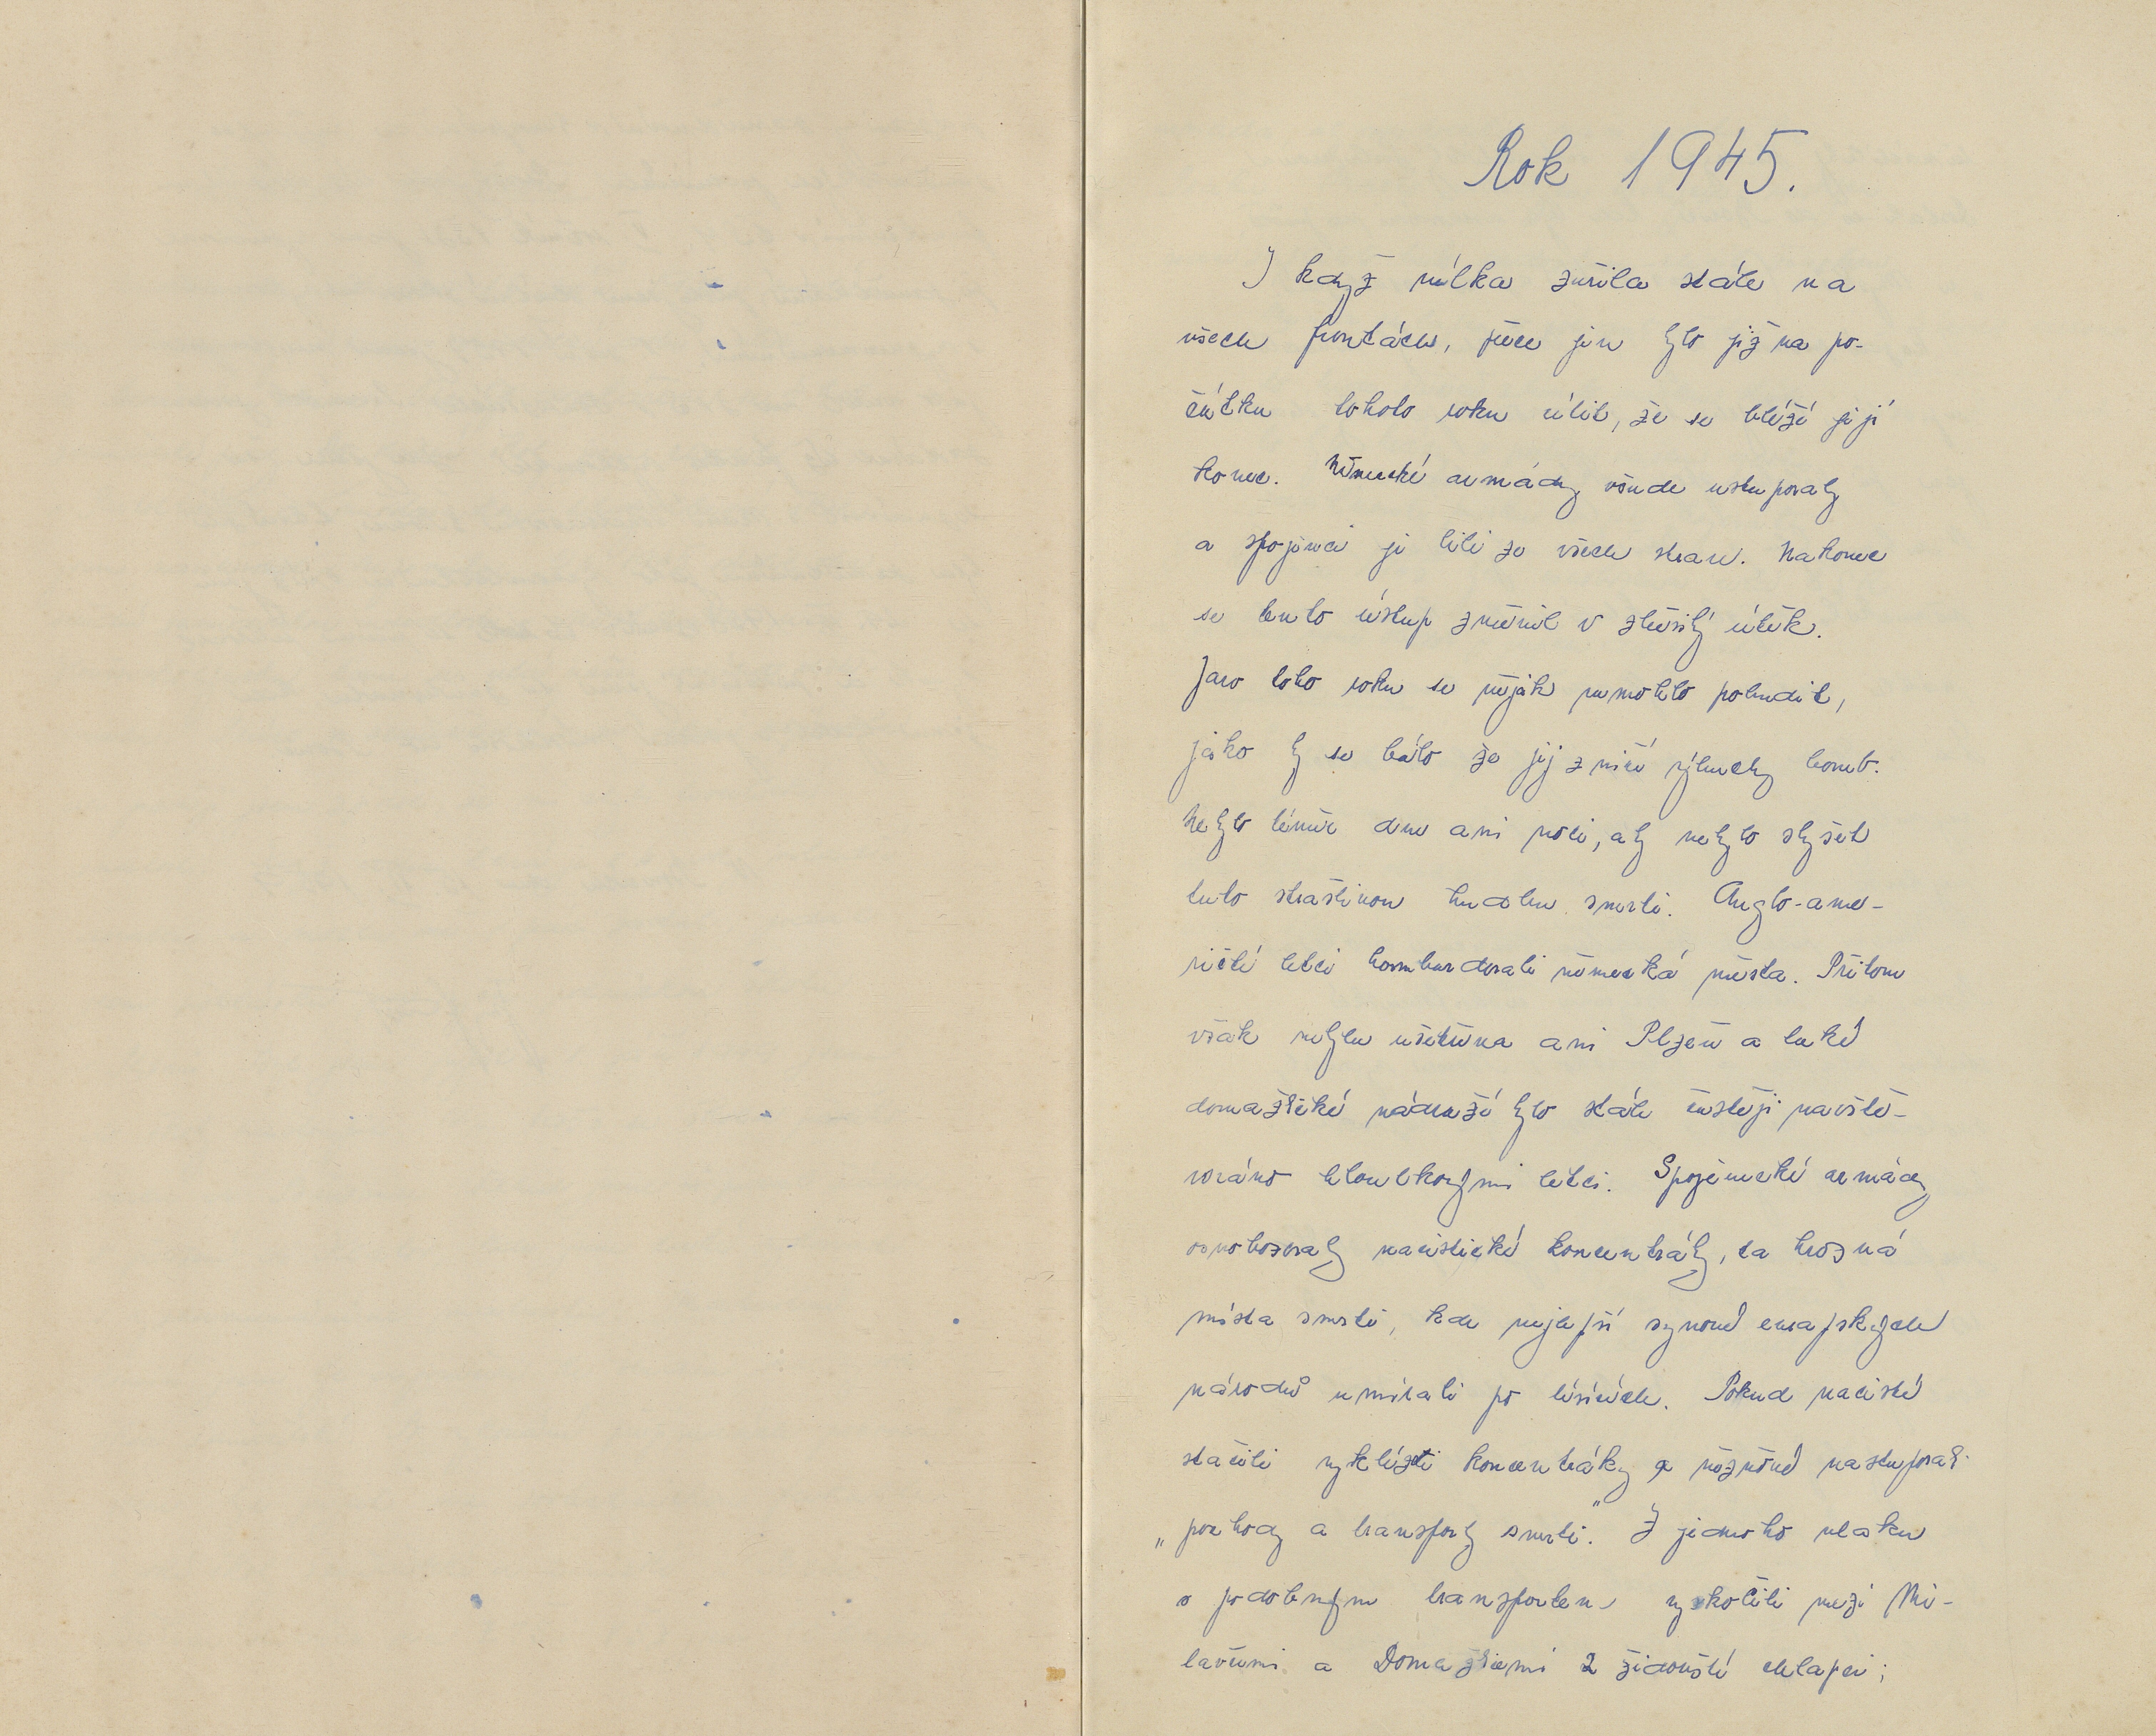 Rok 1945.
I když válka zuřila stále na
všech frontách, přece jen bylo již na po-
čátku tohoto roku cítit, že se blíží její
konec. Německé armády všude ustupovaly
a spojenci je bili ze všech stran. Nakonec
se tento ústup změnil v zběsilý útěk.
Jaro toho roku se nějak nemohlo probudit,
jako by se bálo že jej zničí výbuchy bomb.
Nebylo téměř dne ani noci, aby nebylo slyšet
tuto strašlivou hudbu smrti. Anglo-ame-
ričtí letci bombardovali německá města. Přitom
však nebyla ušetřena ani Plzeň a také
domažlické nádraží bylo stále častěji navště-
vováno hloubkovými letci. Spojenecké armády
osvobozovaly nacistické koncentráky, ta hrozná
místa smrti, kde nejlepší synové evropských
národů umírali po tisících. Pokud nacisté
stačili vyklízeti koncentráky a vězňové nastupovali
„pochody a transporty smrti." Z jednoho vlaku
s podobným transportem vyskočili mezi Mi-
lavčemi a Domažlicemi 2 židovští chlapci;